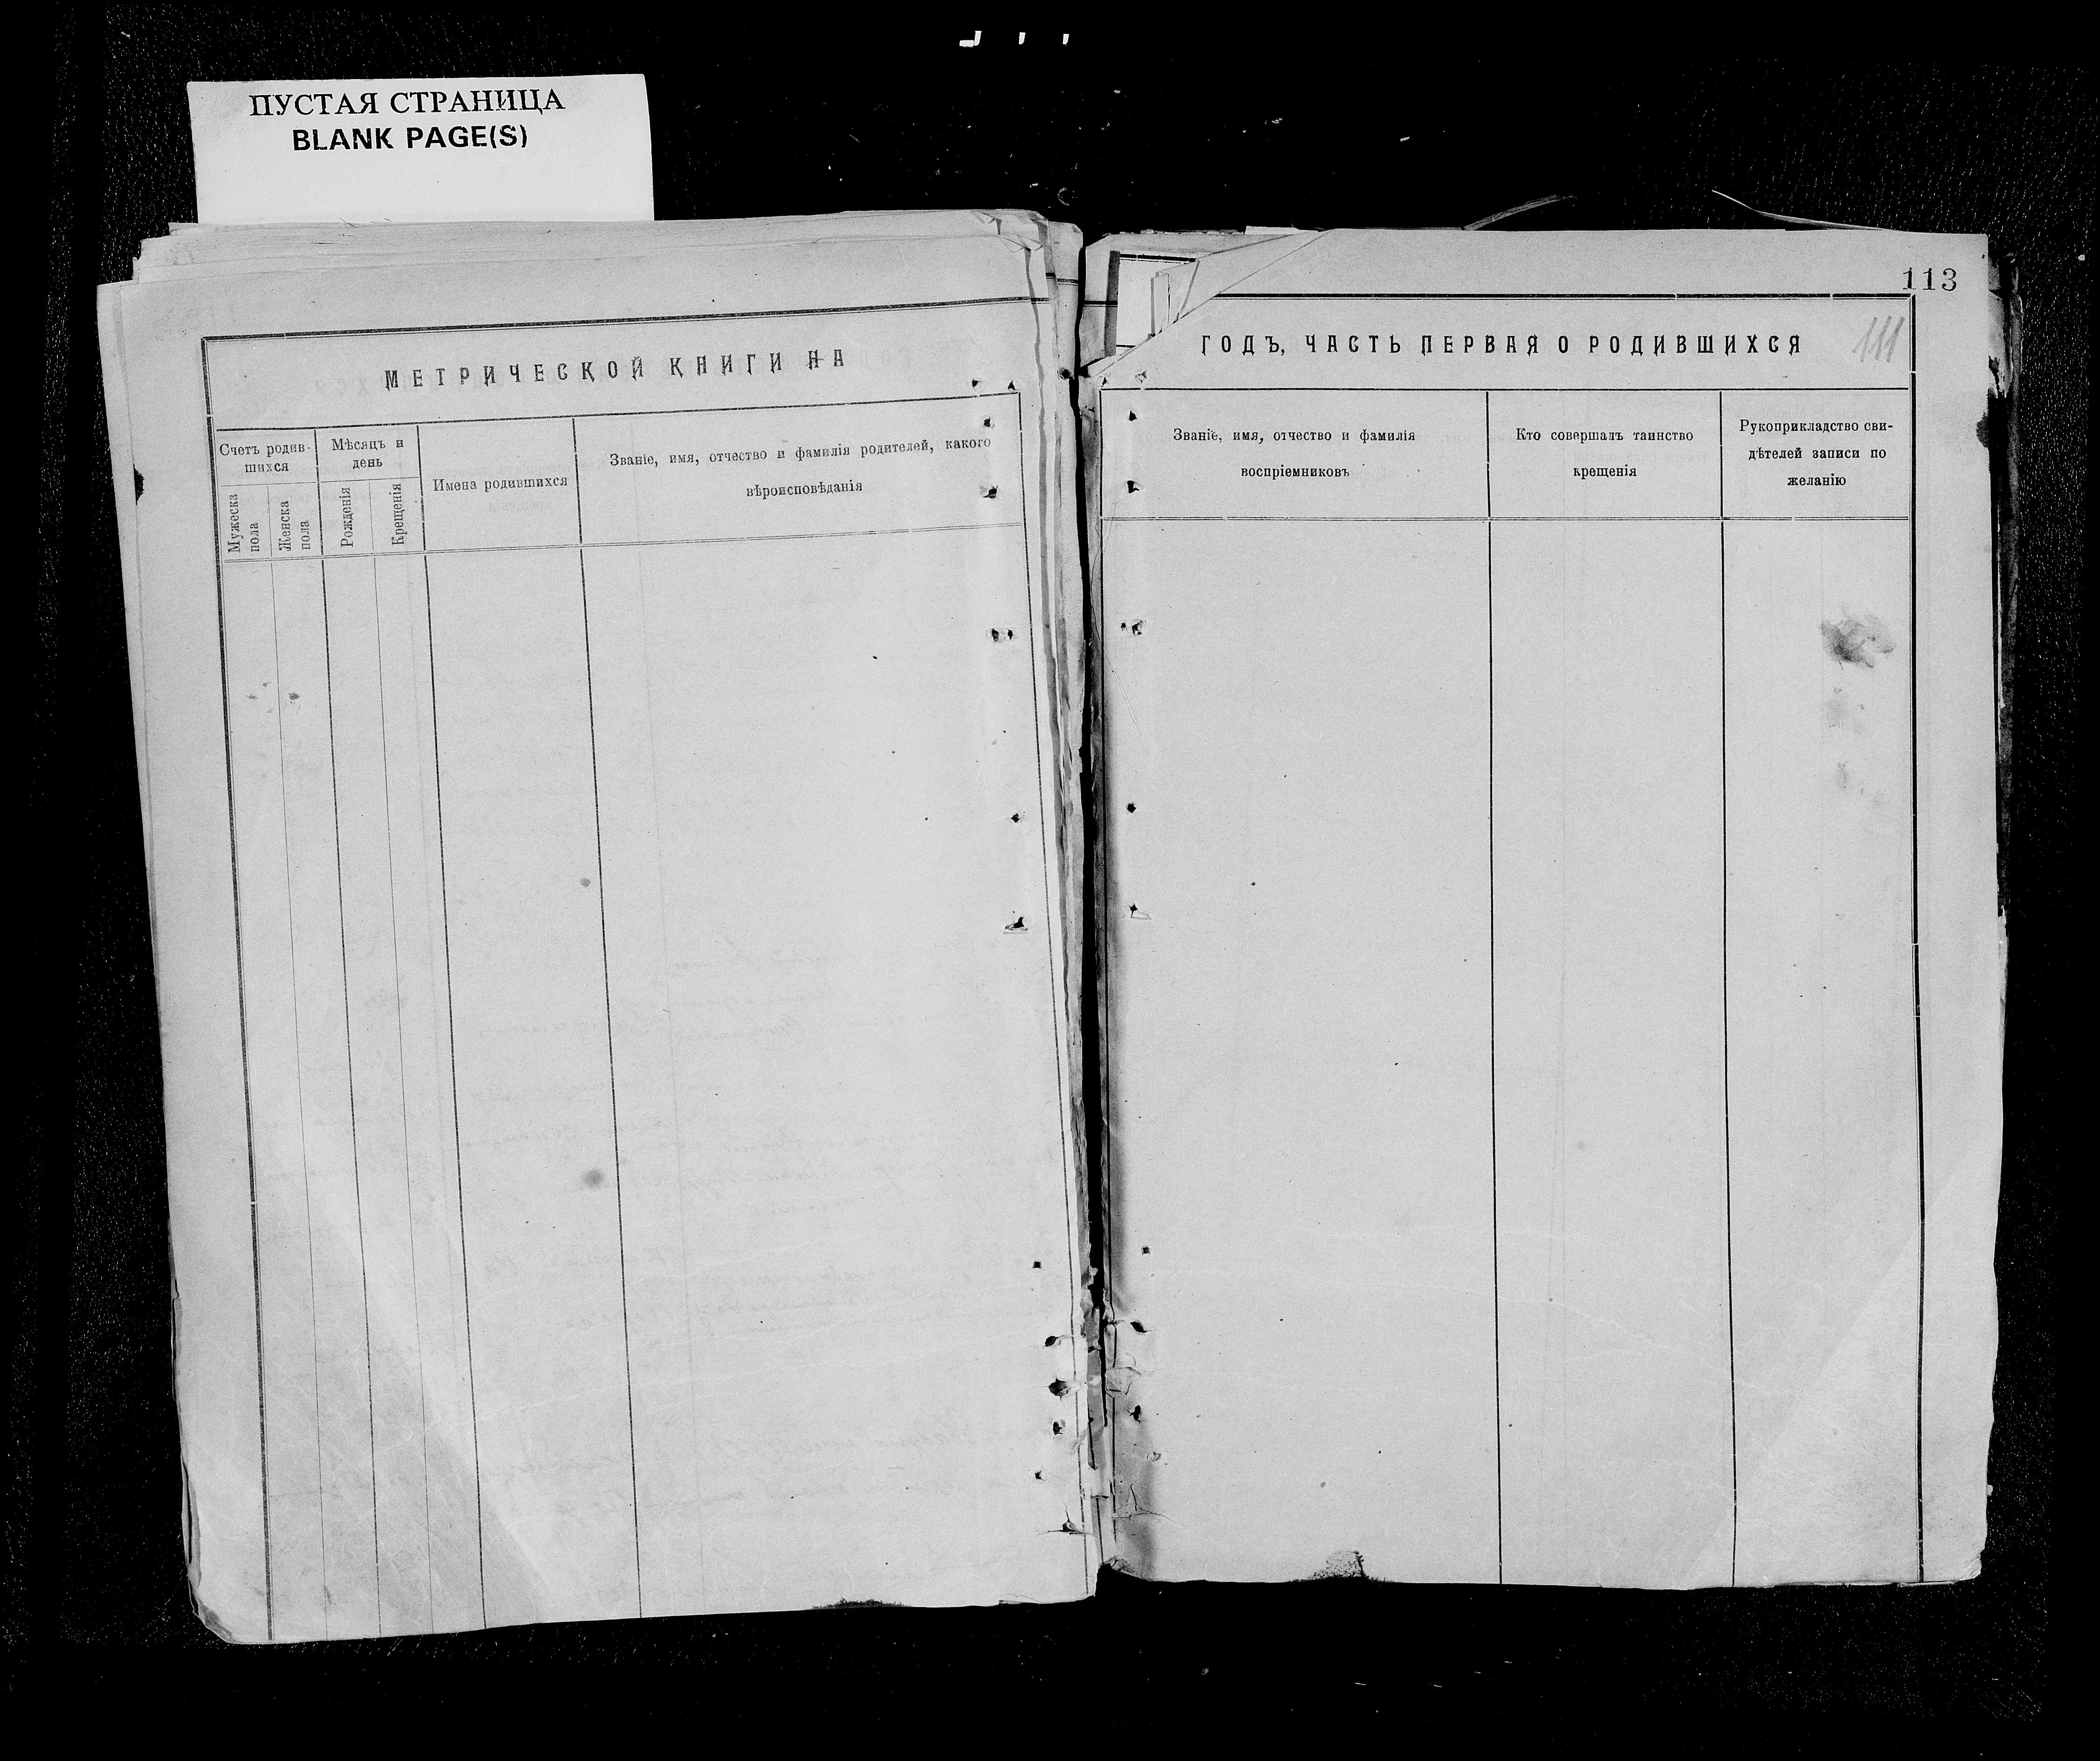 ПУСТАЯ СТРАНИЦА
BLANK PAGE(S)
МЕТРИЧЕСКОЙ КНИГИ НА
Счетъ родив-
шихся
Мѣсяцъ и
день
Мужеска
пола
Женска
пола
Рожденія
Крещенія
Имена родившихся
Званіе, имя, отчество и фамилія родителей, какого
вѣроисповѣданія
113
ГОДЪ, ЧАСТЬ ПЕРВАЯ О РОДИВШИХСЯ
111
Званіе, имя, отчество и фамилія
воспріемниковъ
Кто совершалъ таинство
крещенія
Рукоприкладство сви-
дѣтелей записи по
желанію